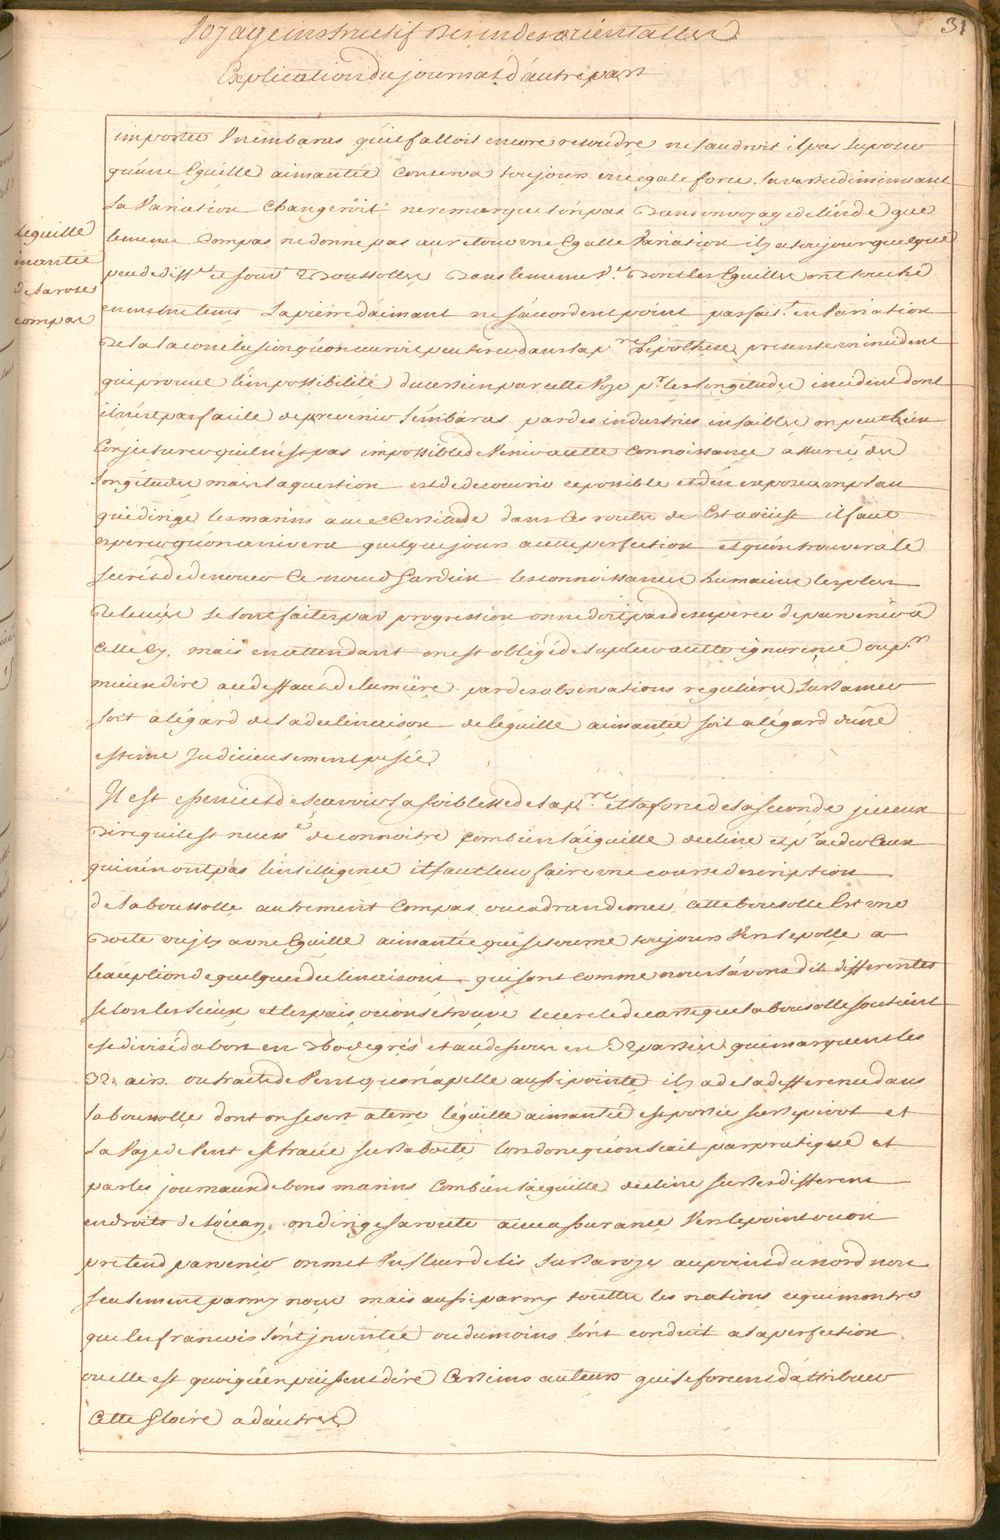 31
Voyage instructif des indes orientalles
Explication du journal d'autre part
importée un embaras qu'il falloit encore resoudre ne faudroit il pas suposer
qu'une Eguille aimantée conserva toujours une egale force la vertu diminuant
la Variation changeroit ne remarque t'on pas dans un voyage de l'inde que
le meme compas ne donne pas au retour une Egalle Variation il y a toujour quelque
peu de diff.ce et souv.t 2 Boussolles dans le meme V.au dont les Eguilles ont touché
en meme tems la pierre d'aimant ne s'acordent point parfait.t en Variation
De la la conclusion qu'on auroit peu tirer dans la p.re hipothese presente un incident
qui prouve l'impossibilité du dessein par cette Voye p.r les longitudes incident dont
il n'est pas facile de prevenir l'embaras par des industries infaibles on peut bien
conjecturer qu'il n'est pas impossible de Venir a cette connoissance assurée des
longitudes mais la question est de decouvrir ce possible et d'en exposer un plan
qui dirige les marins avec certitude dans les routes de Est a oüest il faut
esperer qu'on arrivera quelque jours a cette perfection et qu'on trouvera le
secret de denouer ce noeud Gordien les connoissances humaines les plus
relevées se sont faites par progression on ne doit pas desesperer de parvenir a
celle cy, mais en attendant on est obligé de supleer a cette ignorence ou p.r
mieux dire au deffaut de lumiere par des observations regulieres sur la mer
soit a l'égard de la declinaison de l'éguille aimantée soit a l'égard d'une
estime Judicieusement pesée
l'eguille
imantée
de la rose
compas
Il est essentiel de scavoir la foiblesse de la p.re et la force de la seconde je veux
dire qu'il est necess.e de connoitre combien l'aiguille decline et p.r aider ceux
qui n'en ont pas l'intilligence il faut leur faire une courte description
de la boussolle autrement compas ou cadran de mer cette boussolle est une
Boete ou il y a une Eguille aimantée qui se tourne toujours Vers le polle a
l'exeption de quelques declinaisons qui sont comme nous l'avons dit differentes
selon les lieux et les pais ou on se trouve le cercle de carte que la boussolle soutient
est divisé d'abort en 360 degrés et au dessous en 32 parties qui marquent les
32 airs ou traits de Vent qu'on apelle aussi pointe il y a de la differenue dans
la boussolle dont on se sert a terre l'éguille aimantée est portée sur le pivot et
la Roze de Vent est tracée sur la boete lors donc qu'on scait par pratique et
par les journaux de bons marins combien l'aiguille decline sur les differens
endroits de l'ócean, on dirige sa route avec assurance Vers le point ou on
pretend parvenir on met une fleur de lis sur la roze au point du nord non
seulement parmy nous mais aussi parmy touttes les nations ce qui montre
que les francois l'ont inventée ou du moins l'ont conduit a la perfection
ou elle est quoiqu'en puissent dire certains auteurs qui se forcent d'attribuer
Cette Gloire a d'autres